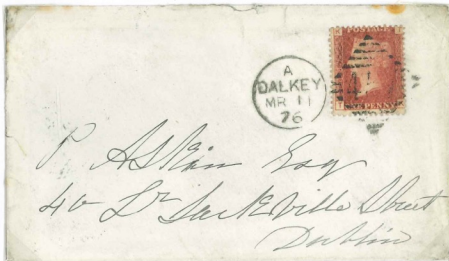 POSTAGE
A
DALKEY
MR 11
76
T
PENNY
P. Askin Esq
40 Lr Sackville Street
Dublin